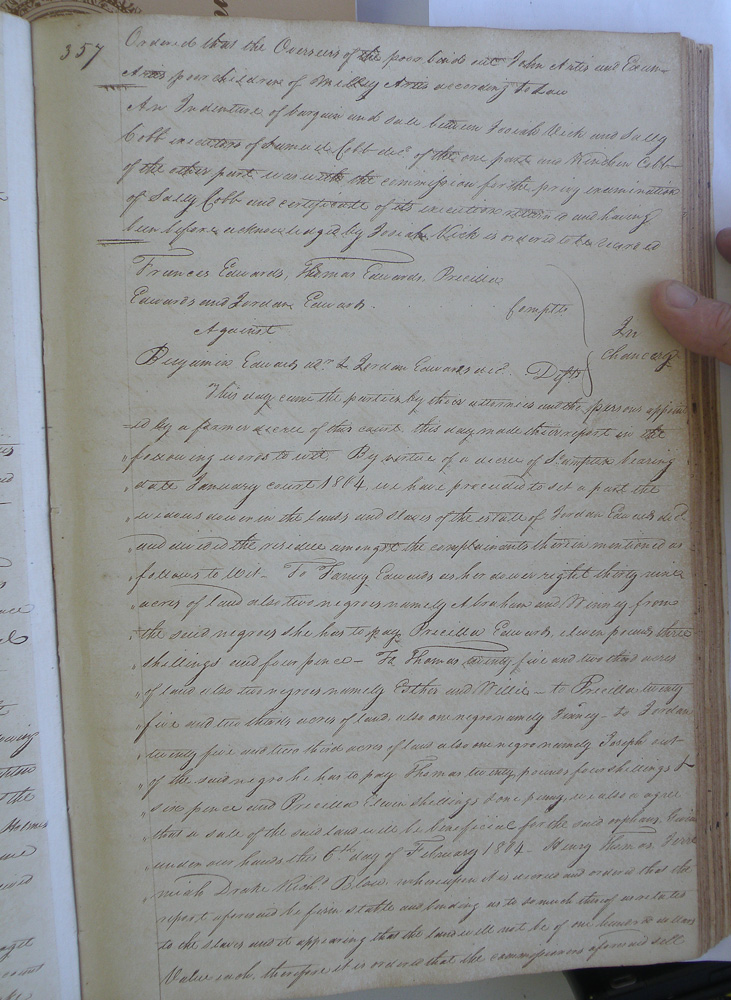 357
Ordered that the Overseers of the poor bind out John Artis and Exum
Artis poor children of Milley Artis according to Law
An Indenture of bargain and sale between Josiah Vick and Sally
Cobb executors of Samuel Cobb dec.d of the one part and Kinchen Cobb
of the other part was with the commission for the privy examination
of Sally Cobb and certificate of its execution and having
been before acknowledged by Josiah Vick is ordered to be recorded
Frances Edwards, Thomas Edwards, Precilla
Edwards and Jordan Edwards Complts
Against In Chancery
Benjamin Edwards adr. of Jordan Edwards dec.d Defts
This day came the parties by their attornies and the persons appoint
=ed by a former decree of this court this day made their report in the
following words to wit. By virtue of a decree of Southampton bearing
date January court 1804, we have proceeded to set a part the
widows dower in the lands and slaves of the estate of Jordan Edwards dec.d
and divided the residue amongst the complainants therein mentioned as
follows to Wit - To Fanny Edwards as her dower right thirty nine
acres of land also two negroes namely Abraham and Winney from
the said negroes she has to pay Precilla Edwards, eleven pounds three
shillings and four pence - To Thomas twenty five and two thirds acres
of land also two negroes namely Esther and Willie - to Precilla twenty
five and two thirds acres of land, also one negro namely - to Jordan
twenty five and two third acres of land also one negro namely Joseph out
of the said negro he has to pay Thomas twenty pounds four shillings &
six pence and Precilla Eleven shillings & one penny, we also agree
that a sale of the said land will be beneficial for the said orphans. Given
under our hands this 6th day of February 1804 - Henry Thomas, Jere
miah Drake Rich.d Blow. whereupon it is decreed and ordered that the
report aforesaid be firm stable and binding as to so much thereof as relates
to the slaves and it appearing that the lands will not be of one hundred dollars
Value each, therefore it is ordered that the commissioners aforesaid sell